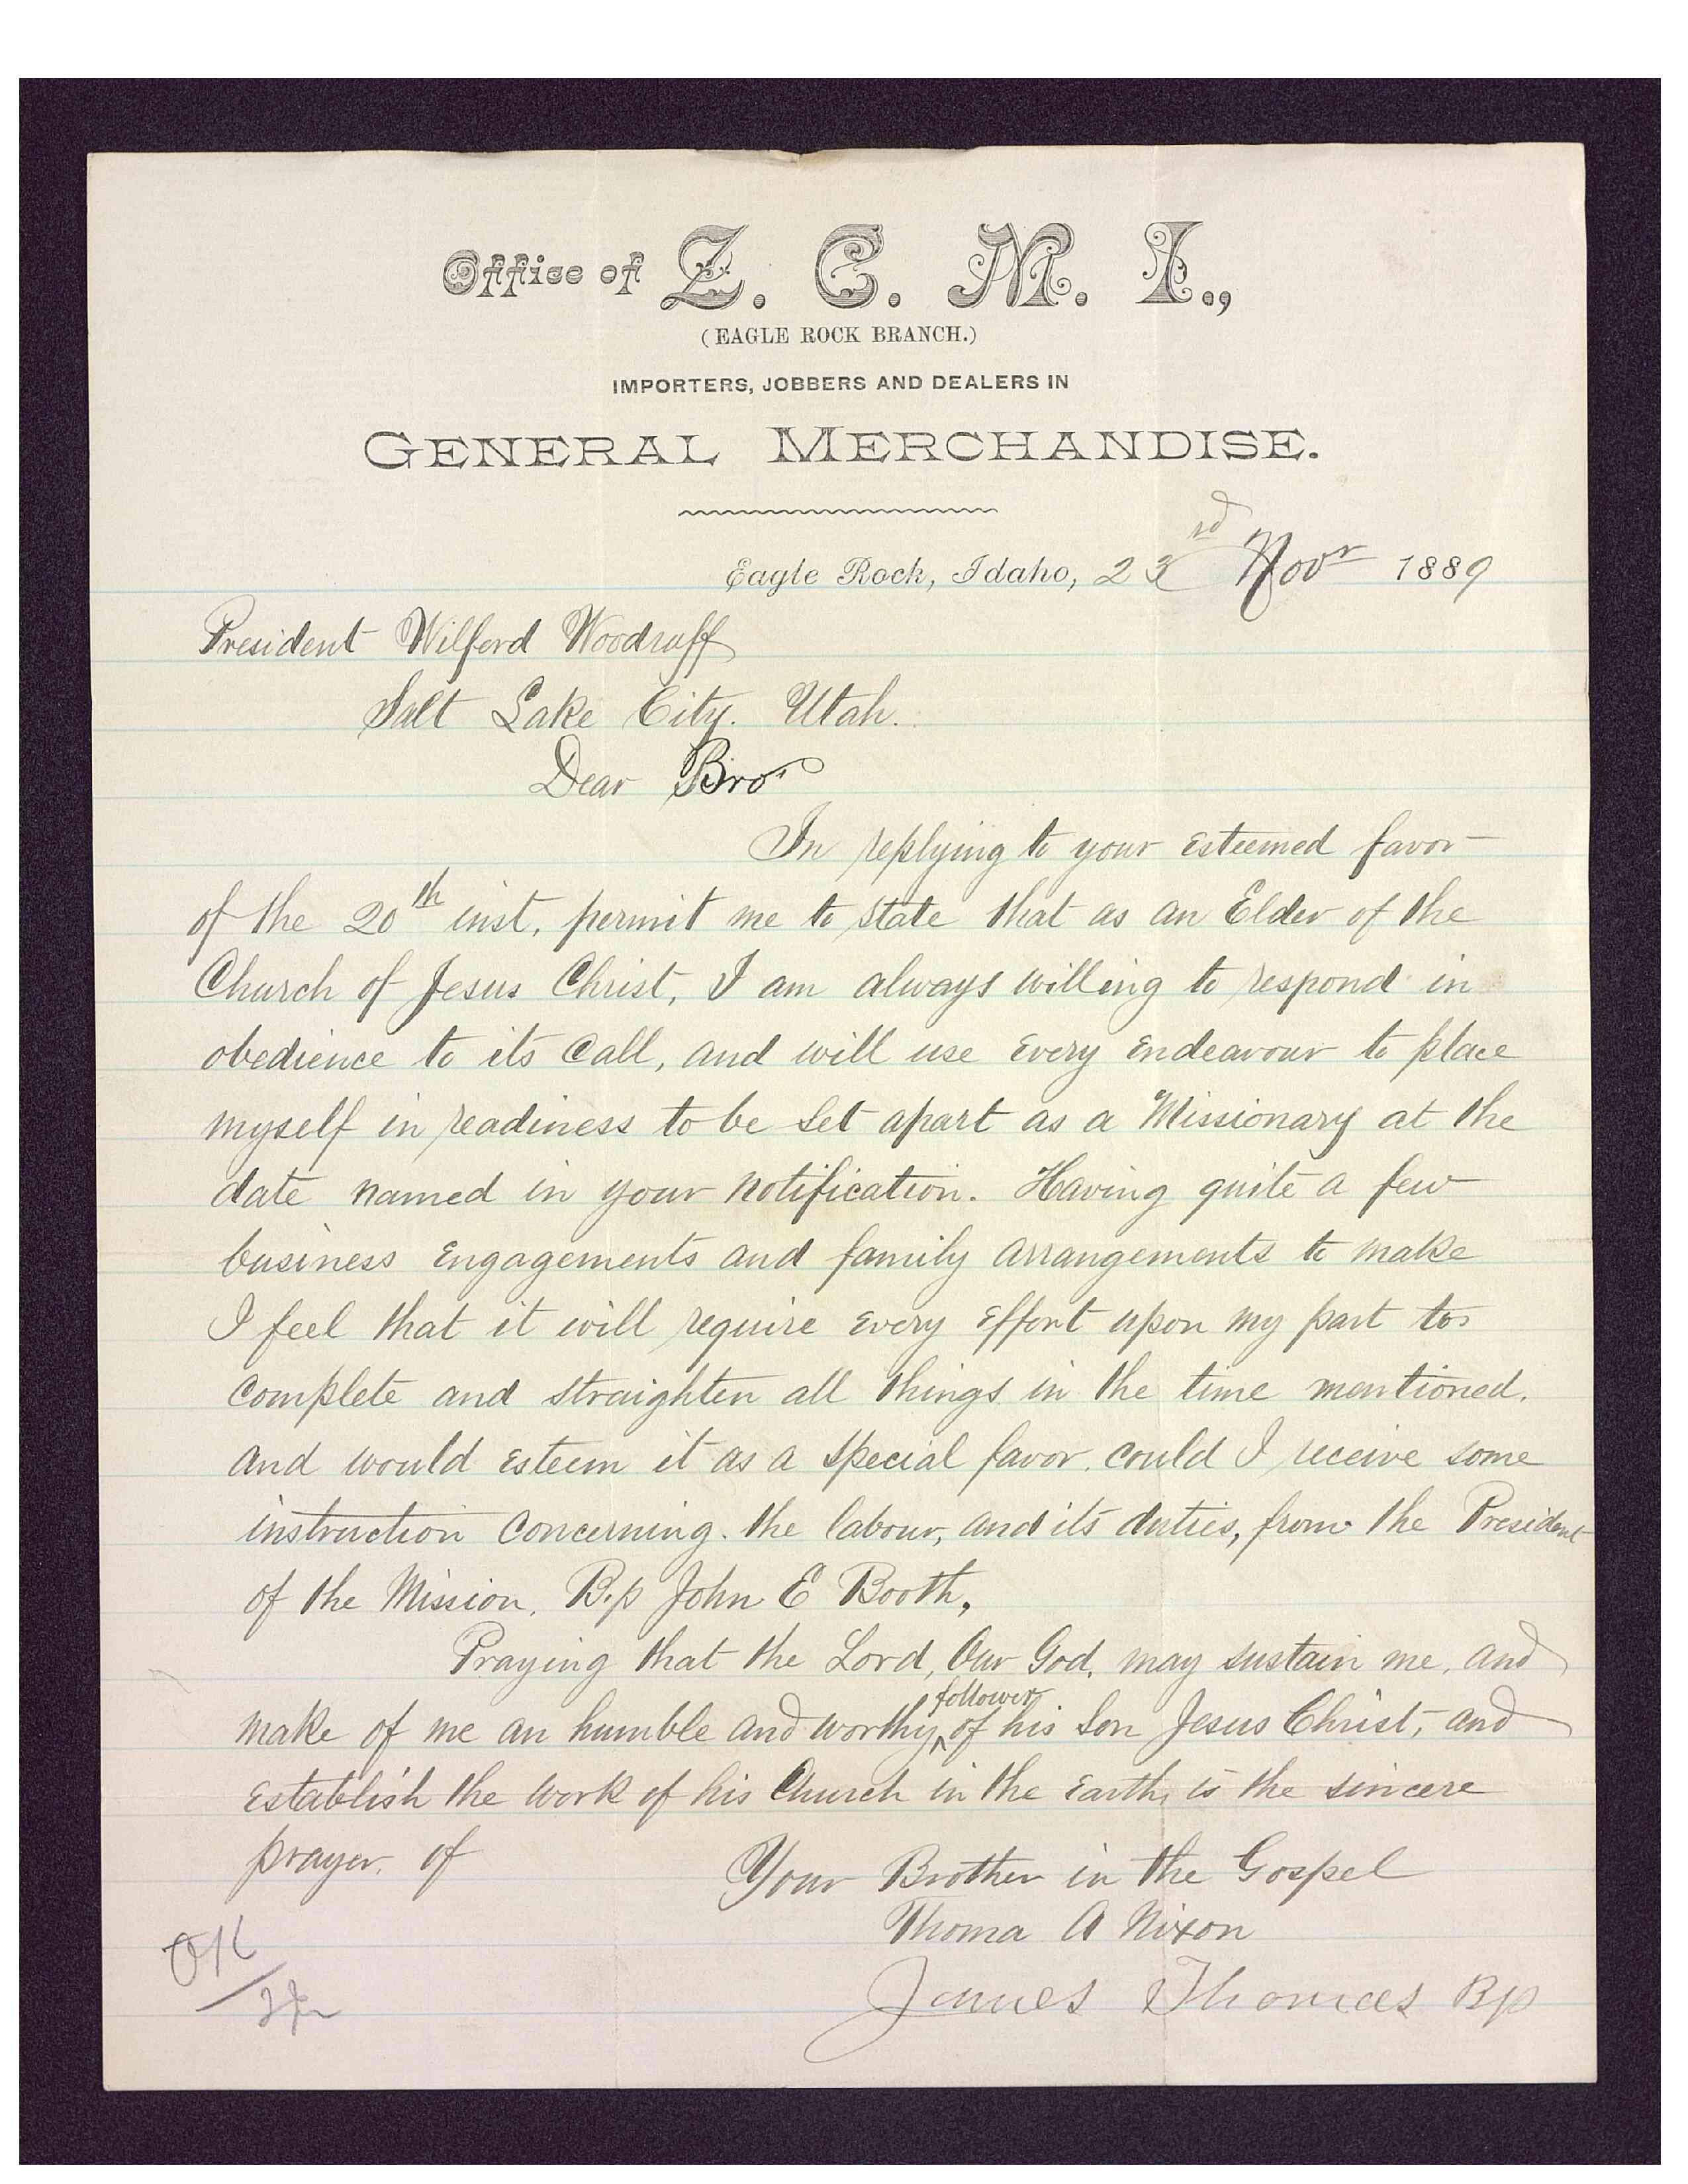 Office of Z. C. M. I.,
(EAGLE ROCK BRANCH.)
IMPORTERS, JOBBERS AND DEALERS IN
GENERAL MERCHANDISE.
Eagle Rock, Idaho, 23rd Novr 1889
President Wilford Woodruff
Salt Lake City. Utah.
Dear Bro
In replying to your esteemed favor
of the 20th inst, permit me to state that as an Elder of the
Church of Jesus Christ, I am always willing to respond in
obedience to its call, and will use every endeavour to place
myself in readiness to be set apart as a Missionary at the
date named in your notification. Having quite a few
business engagements and family arrangements to make
I feel that it will require every effort upon my part to
complete and straighten all things in the time mentioned.
and would esteem it as a special favor. could I receive some
instruction concerning. the labour, and its duties, from the President
of the Mission. B.p John E Booth,
Praying that the Lord, Our God. may sustain me. and
make of me an humble and worthy follower of his Son Jesus Christ, and
establish the work of his Church in the earth, is the sincere
prayer. of
Your Brother in the Gospel
Thoma A Nixon
James Thomas Bp
OK